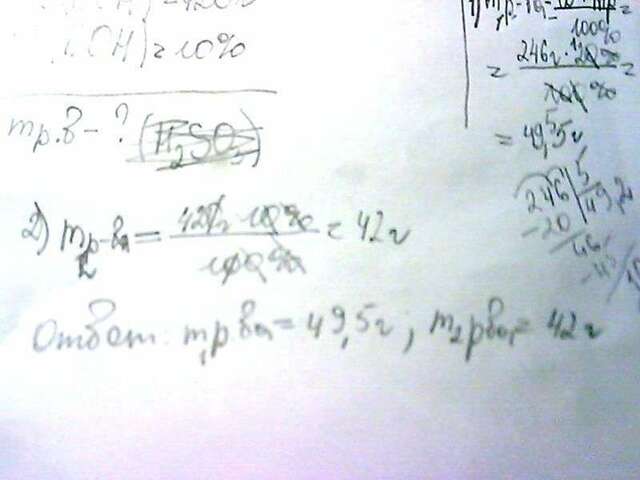 OH) = 10%
mр.в - ? (H₂SO₃)
2) m₂р-ва = 420г · 10% / 100% = 42г
Ответ: m₁р.ва = 49,5г; m₂рва = 42г
100%
= 246г · 20% =
100%
= 49,5г
246 5
-20 49,2
46